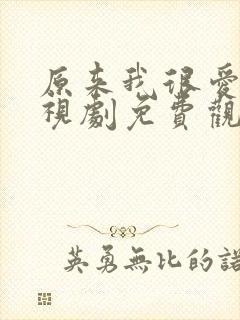 原来我很愛
視劇免費觀
英勇無比的諾